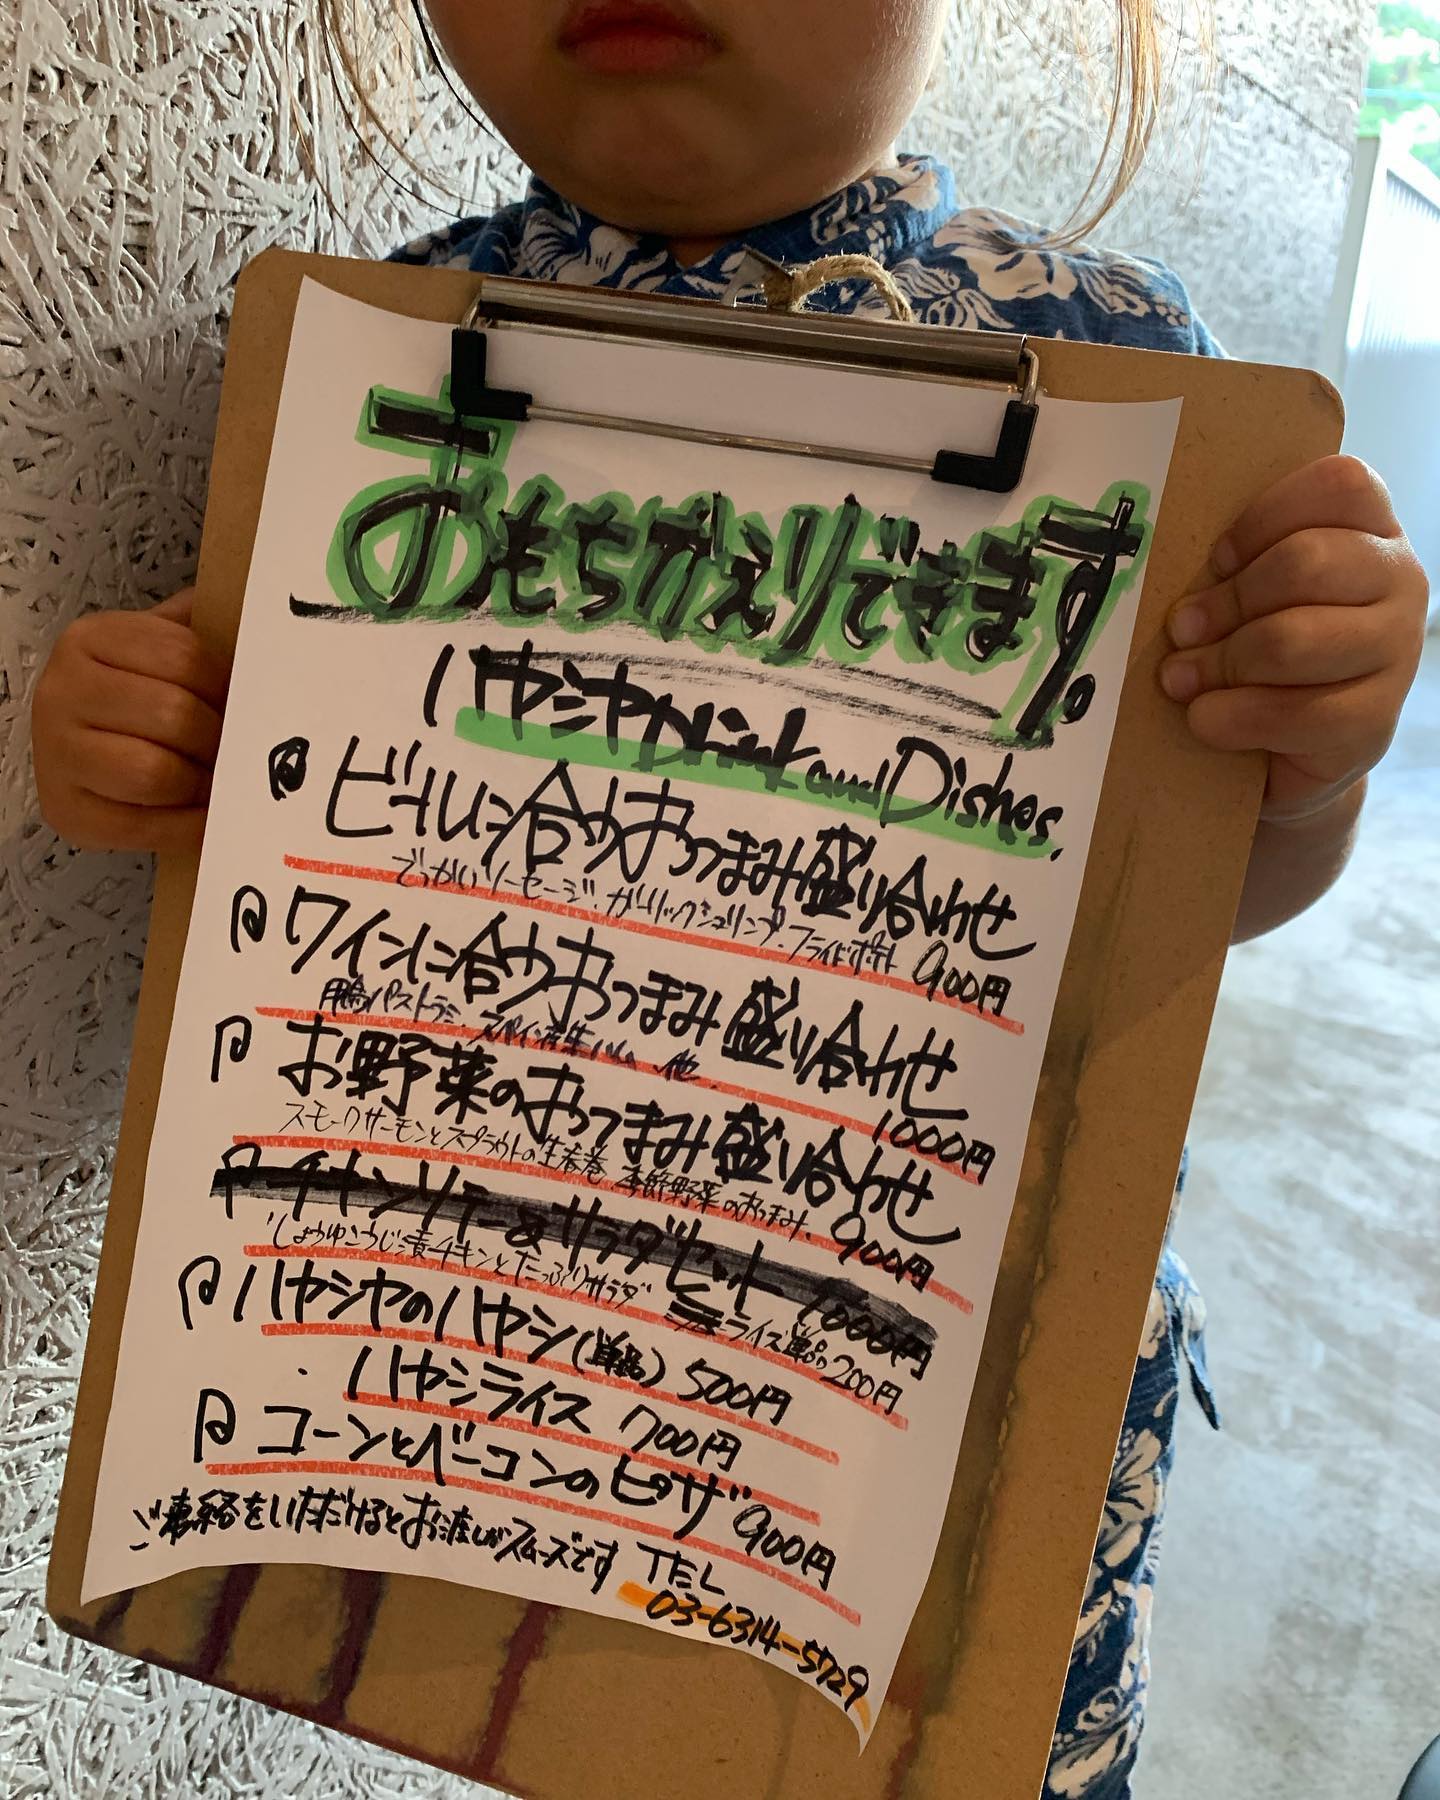 おもちかえりできます。
ハヤシヤ Drink and Dishes.
ビールに合うおつまみ盛り合わせ
でっかいソーセージ.ガーリックシュリンプ.フライドポテト 900円
ワインに合うおつまみ盛り合わせ
パストラミ.スペイン産生ハム、他. 1000円
お野菜のおつまみ盛り合わせ
スモークサーモンとスプラウトの生春巻 季節野菜のおつまみ. 900円
チキンソテー&サラダセット 1000円
しょうゆこうじ漬チキンとたっぷりサラダ ライス単品 200円
ハヤシヤのハヤシ(単品) 500円
ハヤシライス 700円
コーンとベーコンのピザ 900円
ご連絡をいただけるとお渡しがスムーズです TEL
03-6314-5729